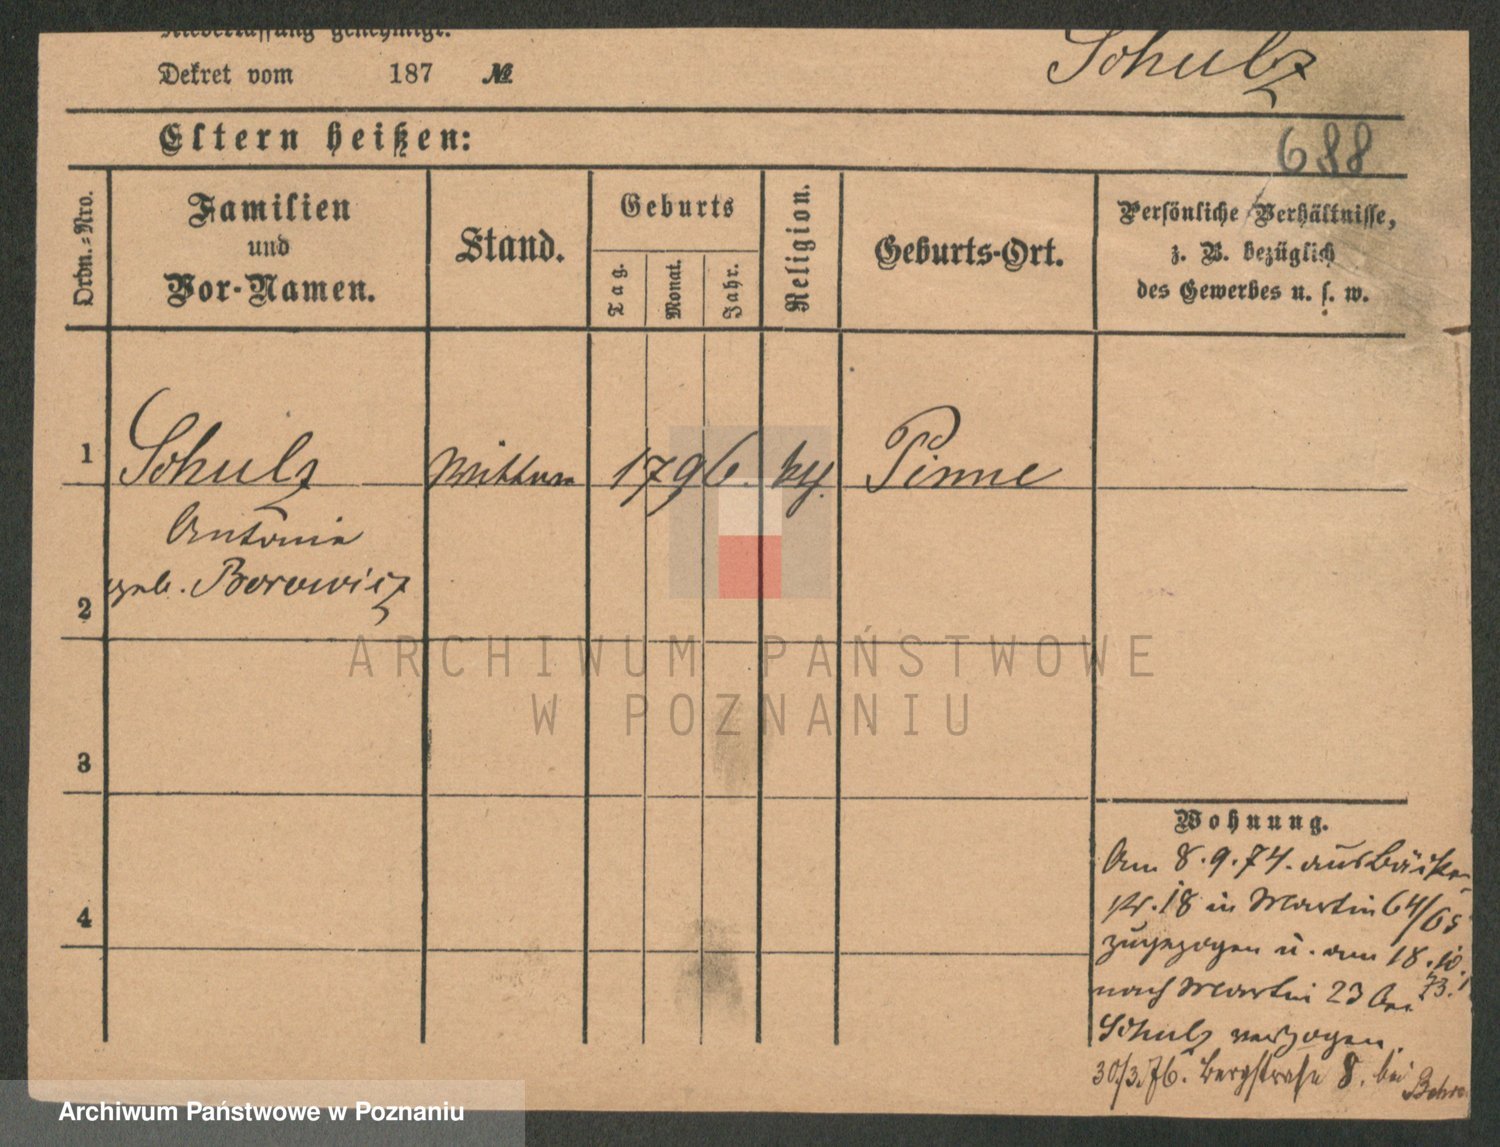 Niederlassung genehmigt.
Dekret vom 187 №
Schulz
688
Eltern heißen:
Ordn.=Nro.
Familien
und
Vor-Namen.
Stand.
Geburts
Tag.
Monat.
Jahr.
Religion.
Geburts-Ort.
Persönliche Verhältnisse,
z. B. bezüglich
des Gewerbes u. s. w.
1
Schulz
1796.
Pinne
Antonie
geb. Borowicz
2
3
4
Wohnung.
Am 8.9.74. aus Bäcker
str. 18 in Martin 64/65
zugezogen u. am 18.10.
nach Martin 23
Schulz verzogen.
30/3.76. Bergstraße 8. bei
ARCHIWUM PAŃSTWOWE
W POZNANIU
Archiwum Państwowe w Poznaniu